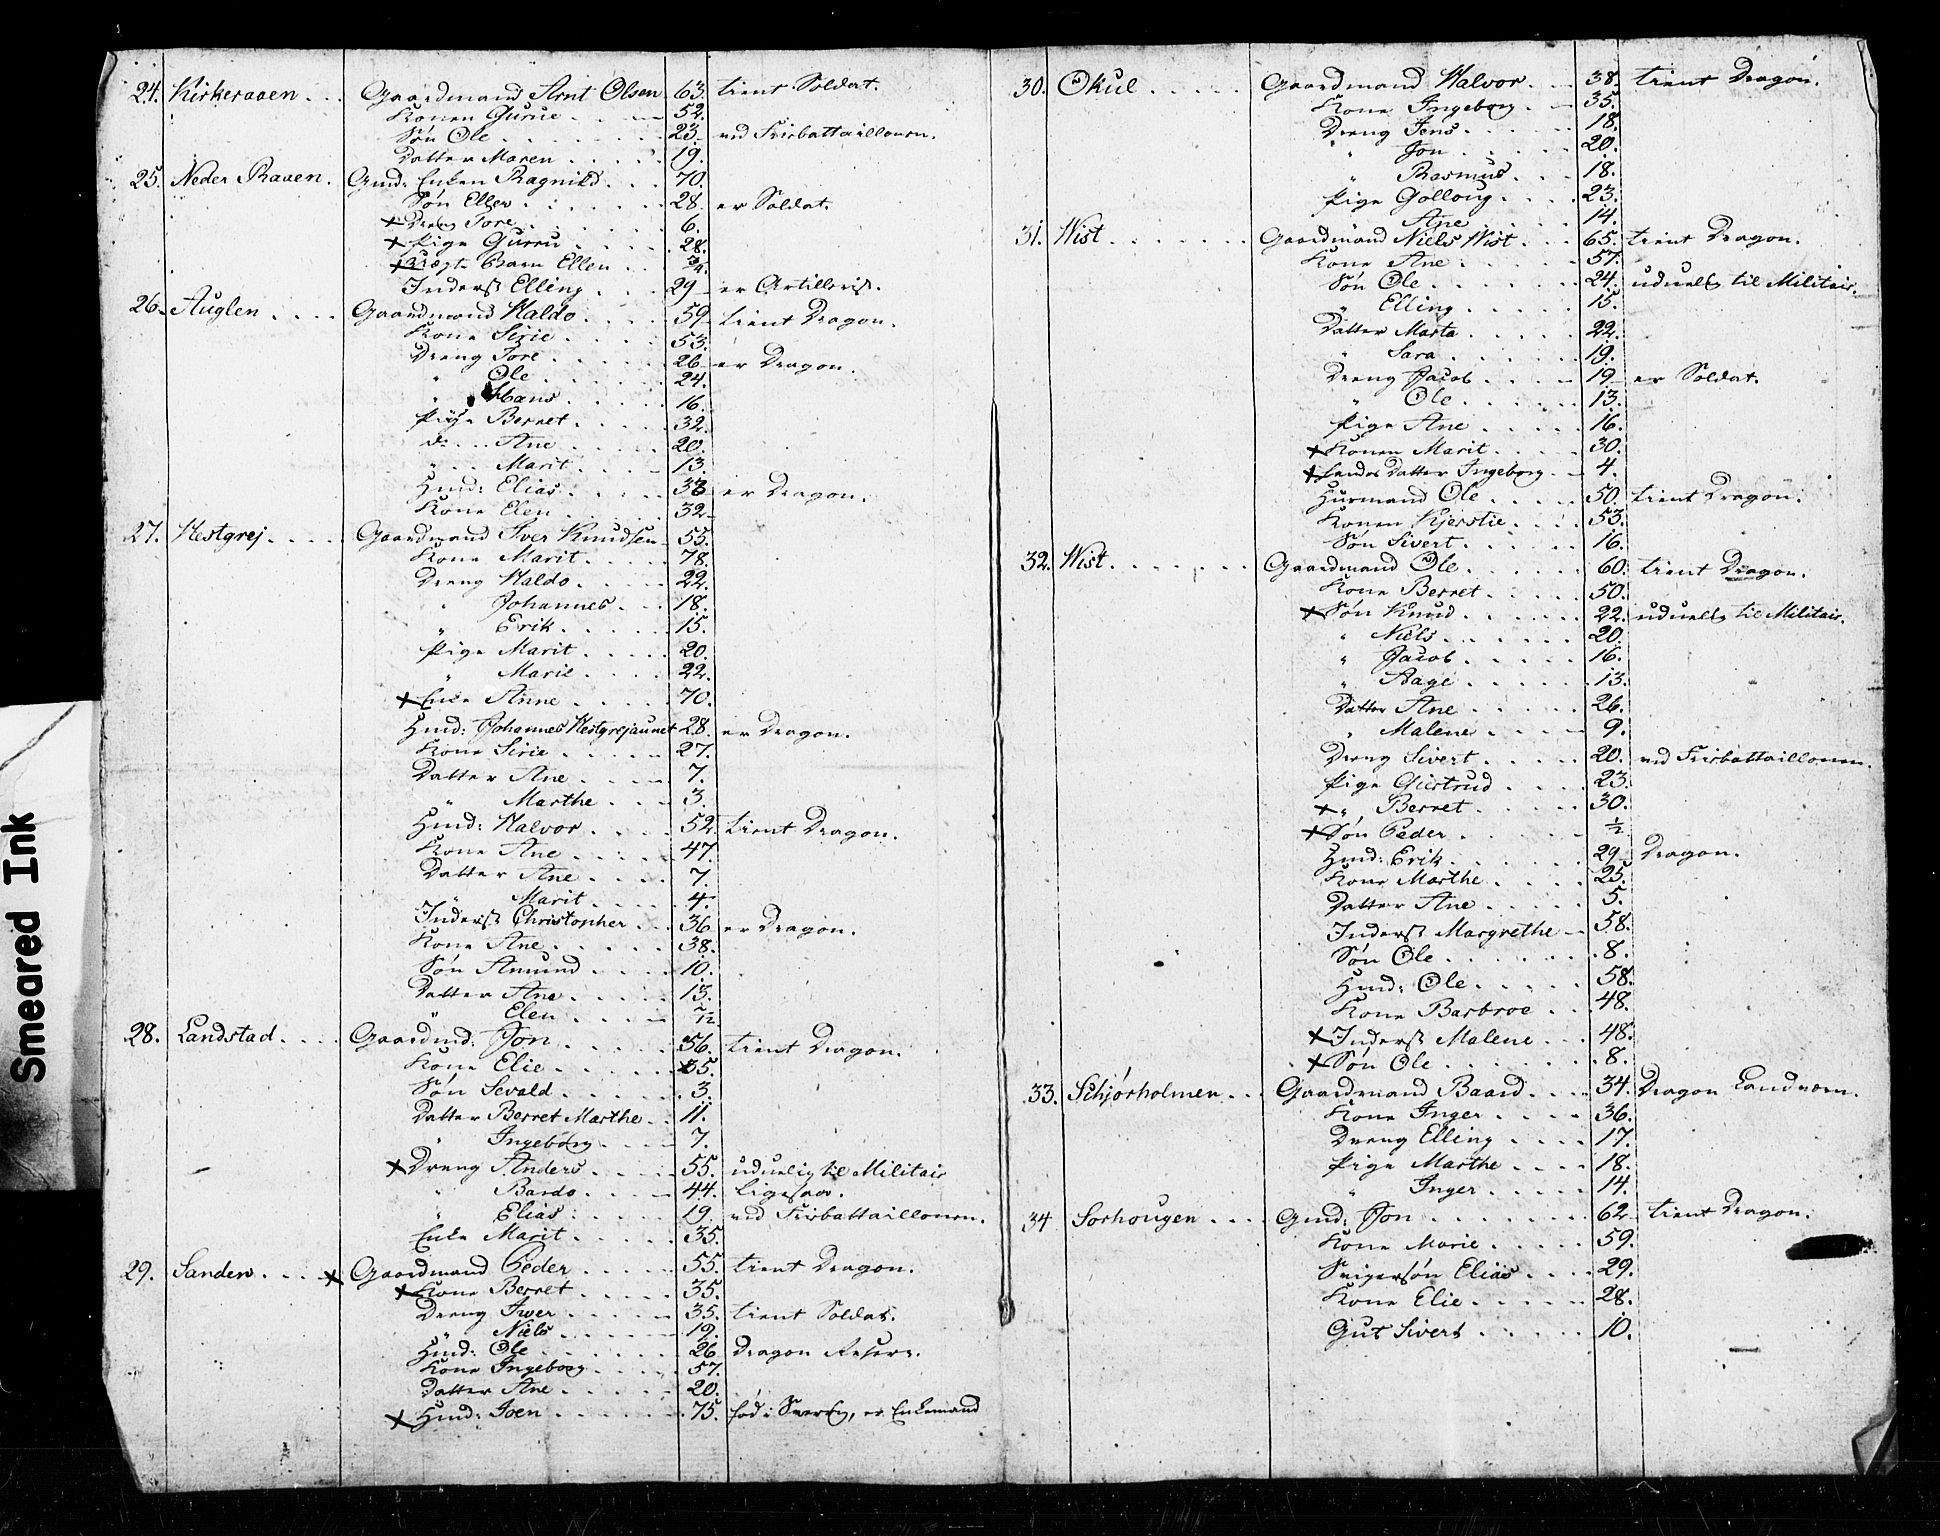 24. Kirkeraaen . . . Gaardmand Arnt Olsen 63. tient Soldat.
Konen Gurue . . . 52.
Søn Ole . . . 23. ved Fribattaillonen.
Datter Maren . . . 19.
25. Neder Raaen. Gmd: Enken Ragnild . . . 70.
Søn Eller . . . 28. er Soldat.
x Dreng Tore . . . 6.
x Pige Gurru . . . 28.
x Barn Ellen . . .
Inderst Elling . . . 29 er Artillerist.
26. Auglen . . . . Gaardmand Haldo . . . 59. tient Dragon.
Kone Sirie . . . 53.
Dreng Tore . . . 26 er Dragon.
" Ole . . . 24.
" Hans . . . 16.
Piige Berret . . . 32.
do . . . Ane . . . 20.
" . . Marit . . . 13.
Hmd: Elias . . . 33 er Dragon.
Kone Elen . . . 32
27. Hestgrej . . . . Gaardmand Iver Knudsen 55.
Kone Marit . . . 78.
Dreng Haldo . . . 22.
" Johannes . . . 18.
" Erik . . . 15.
Pige Marit . . . 20.
" Marie . . . 22.
x Enke Anne . . . 70.
Hmd: Johannes Hestgrejaunet 28. er Dragon.
Kone Sirie . . . 27.
Datter Ane . . . 7.
" Marthe . . . 3.
Hmd: Halvor . . . 52. tient Dragon.
Kone Ane . . . 47.
Datter Ane . . . 7.
" Marit . . . 4.
Inderst Christopher . . . 36 er Dragon.
Kone Ane . . . 38.
Søn Amund . . . 10.
Datter Ane . . . 13.
" Elen . . . 7/12
28. Landstad . . . . Gaardmd: Jon . . . 56. tient Dragon.
Kone Elie . . . 35.
Søn Sevald . . . 3.
Datter Berret Marthe . . 11.
" Ingebórg . . . 7.
x Dreng Anders . . . 55. uduelig til Militair
" Bardo . . . 44. ligesaa.
" Elias . . . 19. ved Fribattaillonen.
Enke Marit . . . 35.
29. Sanden . . . x Gaardmand Peder . . . 55. tient Dragon.
x Kone Berret . . . 35.
Dreng Iver . . . 35. tient Soldat.
" Niels . . . 19.
Hmd: Ole . . . 26 Dragon Reserv.
Kone Ingeborg . . . 57.
Datter Ane . . . 20.
x Hmd: Joen . . . 75. fød i Sverrig, er Enkemand
30. Økul . . . . . Gaardmand Halvor . . . 38. tient Dragon.
Kone Ingeborg . . . 35.
Dreng Jens . . . 18.
" Jon . . . 20.
" Rasmus . . . 18.
Pige Golloug . . . 23.
" Ane . . . 14.
31. Wist . . . . . . Gaardmand Niels Wist . . . 65. tient Dragon.
Kone Ane . . . 57.
Søn Ole . . . 24. uduelig til Militair.
" Elling . . . 15.
Datter Marta . . . 22.
" Sara . . . 19.
Dreng Jacob . . . 19 er Soldat.
" Ole . . . 13.
Pige Ane . . . 16.
x Konen Marit . . . 30.
x Datter Ingeborg . . . 4.
Husmand Ole . . . 50. tient Dragon.
Konen Kjerstie . . . 53.
Søn Sivert . . . 16.
32. Wist . . . . . . Gaardmand Ole . . . 60. tient Dragon.
Kone Berret . . . 50.
x Søn Knud . . . 22. uduelig til Militair.
" Niels . . . 20.
" Jacob . . . 16.
" Aage . . . 13.
Datter Ane . . . 26.
" Malene . . . 9.
Dreng Sivert . . . 20. ved Fribattaillonen.
Pige Giertrud . . . 23.
x " Berret . . . 30.
x Søn Peder . . . 1/2.
Hmd: Erik . . . 29 Dragon.
Kone Marthe . . . 25.
Datter Ane . . . 5.
Inderst Margrethe . . . 58.
Søn Ole . . . 8.
Hmd: Ole . . . 58.
Kone Barbroe . . . 48.
x Inderst Malene . . . 48.
x Søn Ole . . . 8.
33. Schjørholmen . . . Gaardmand Baard . . . 34. Dragon Landværn.
Kone Inger . . . 36.
Dreng Elling . . . 17.
Pige Marthe . . . 18.
" Inger . . . 14.
34 Sorhougen . . . . Gmd: Jon . . . 62 tient Dragon.
Kone Marie . . . 59.
Svigersøn Elias . . . 29.
Kone Elie . . . 28.
Gut Sivert . . . 10.
Smeared Ink